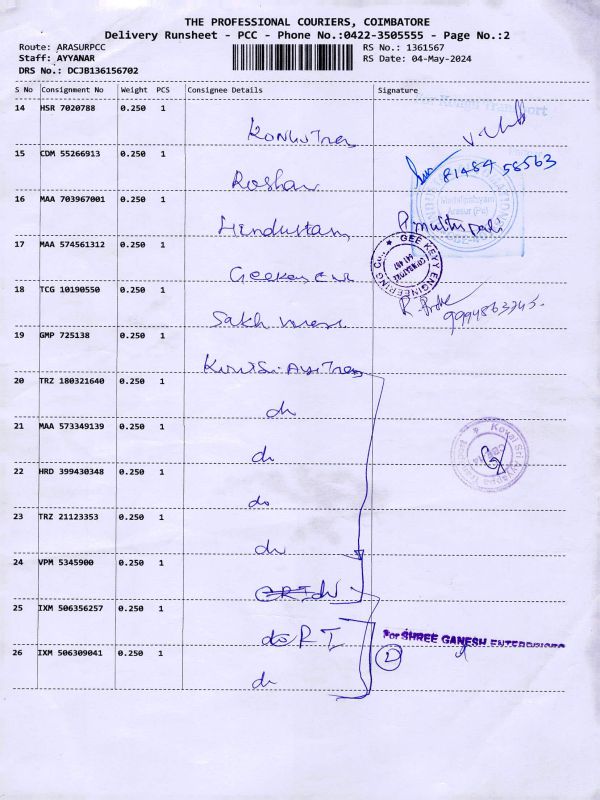 THE PROFESSIONAL COURIERS, COIMBATORE
Delivery Runsheet - PCC - Phone No.:0422-3505555 - Page No.:2
Route: ARASURPCC
RS No.: 1361567
Staff: AYYANAR
RS Date: 04-May-2024
DRS No.: DCJB136156702
S No Consignment No Weight PCS Consignee Details Signature
14 HSR 7020788 0.250 1
15 CDM 55266913 0.250 1
81484 58563
Roshan
16 MAA 703967001 0.250 1
Hindustan
17 MAA 574561312 0.250 1
GEE KEYY ENGINEERING Co.
18 TCG 10190550 0.250 1
9994863745
19 GMP 725138 0.250 1
20 TRZ 180321640 0.250 1
do
21 MAA 573349139 0.250 1
do
Kovai Sri
22 HRD 399430348 0.250 1
do
23 TRZ 21123353 0.250 1
do
24 VPM 5345900 0.250 1
do
25 IXM 506356257 0.250 1
RI
For SHREE GANESH ENTERPRISES
26 IXM 506309041 0.250 1
2
do